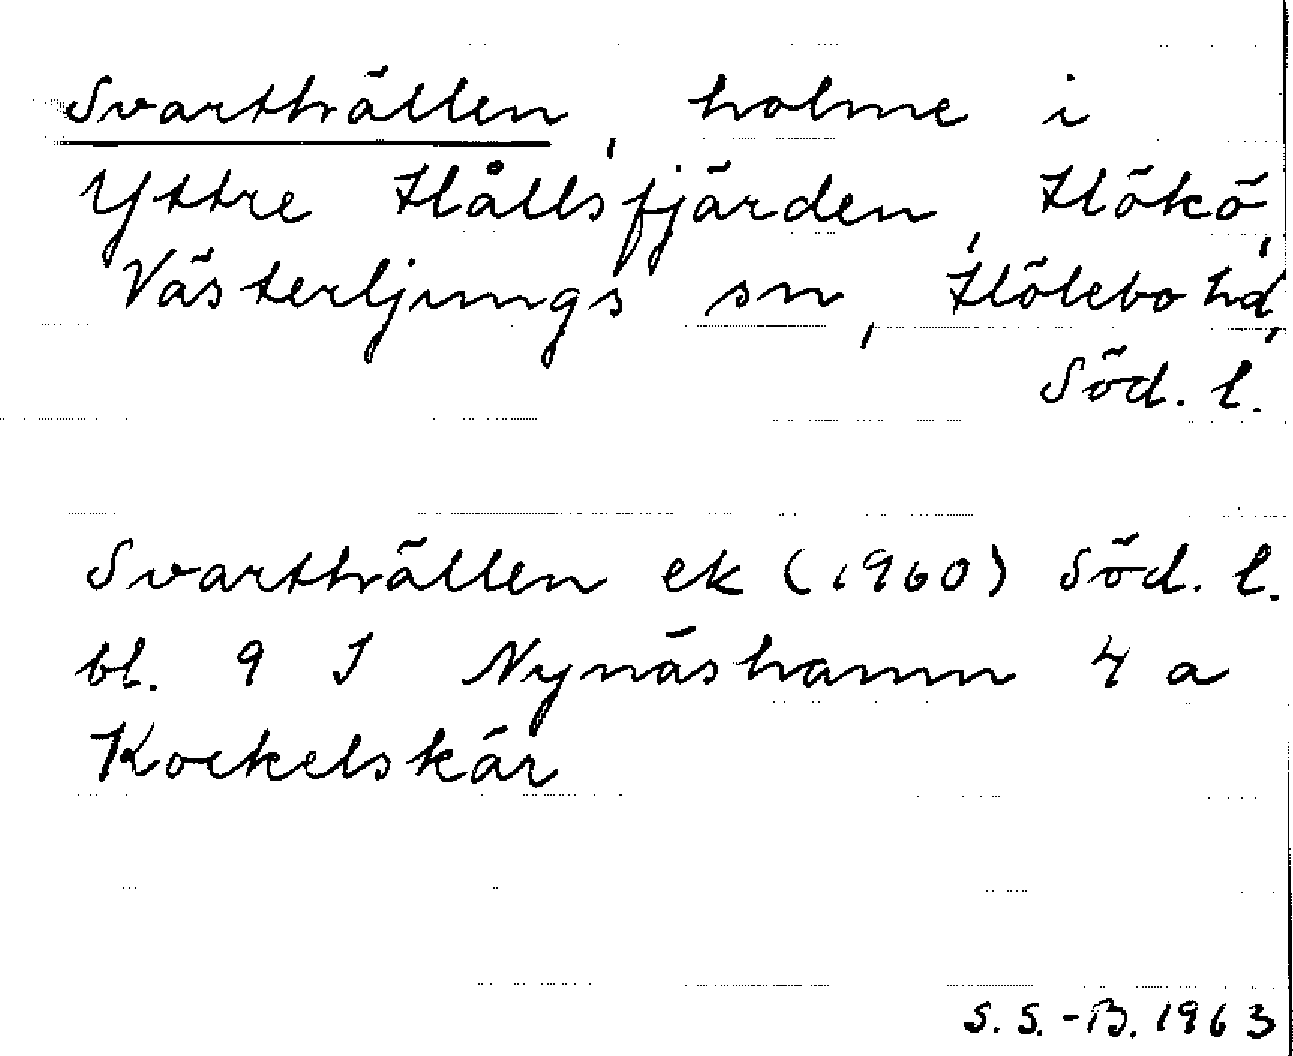 Svarthällen, holme i
Yttre Hållsfjärden, Hökö,
Västerljungs sn, Hölebo hd,
Söd. l.
Svarthällen ek (1960) Söd. l.
bl. 9 I Nynäshamn 4 a
Kockelskär
S. S.-B. 1963